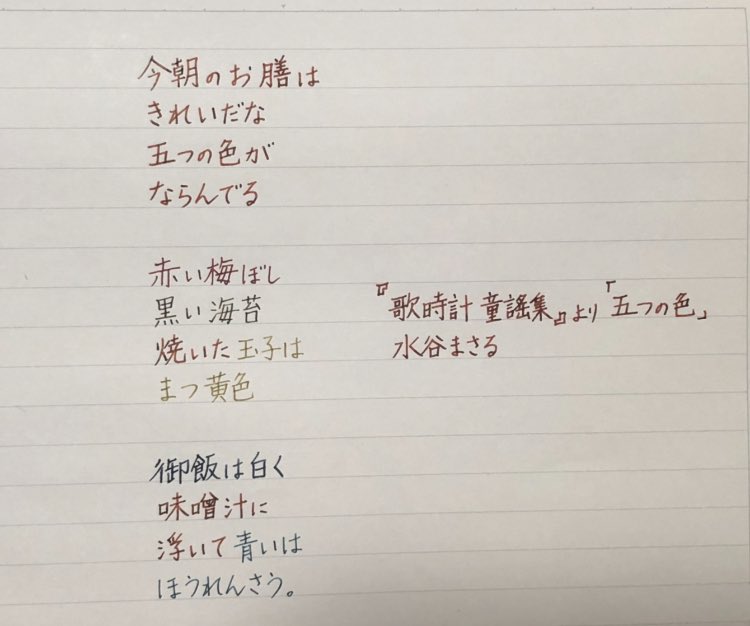 今朝のお膳は
きれいだな
五つの色が
ならんでる
赤い梅ぼし
黒い海苔
焼いた玉子は
まつ黄色
御飯は白く
味噌汁に
浮いて青いは
ほうれんさう。
『歌時計 童謡集』より「五つの色」
水谷まさる